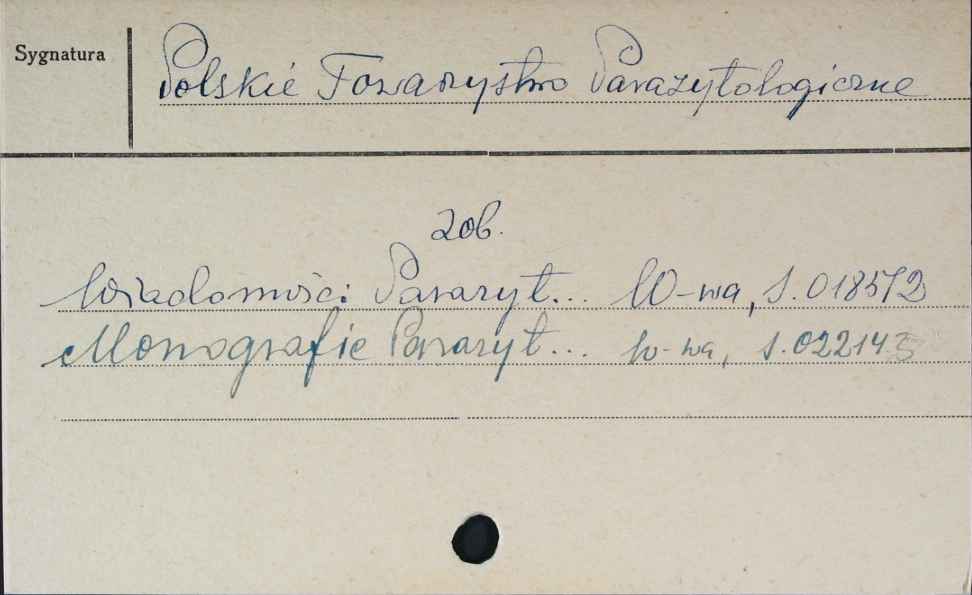 Sygnatura
Polskie Towarzystwo Parazytologiczne
zob.
Wiadomości Parazyt... W-wa, S.018572
Monografie Parazyt... W-wa, S.022143